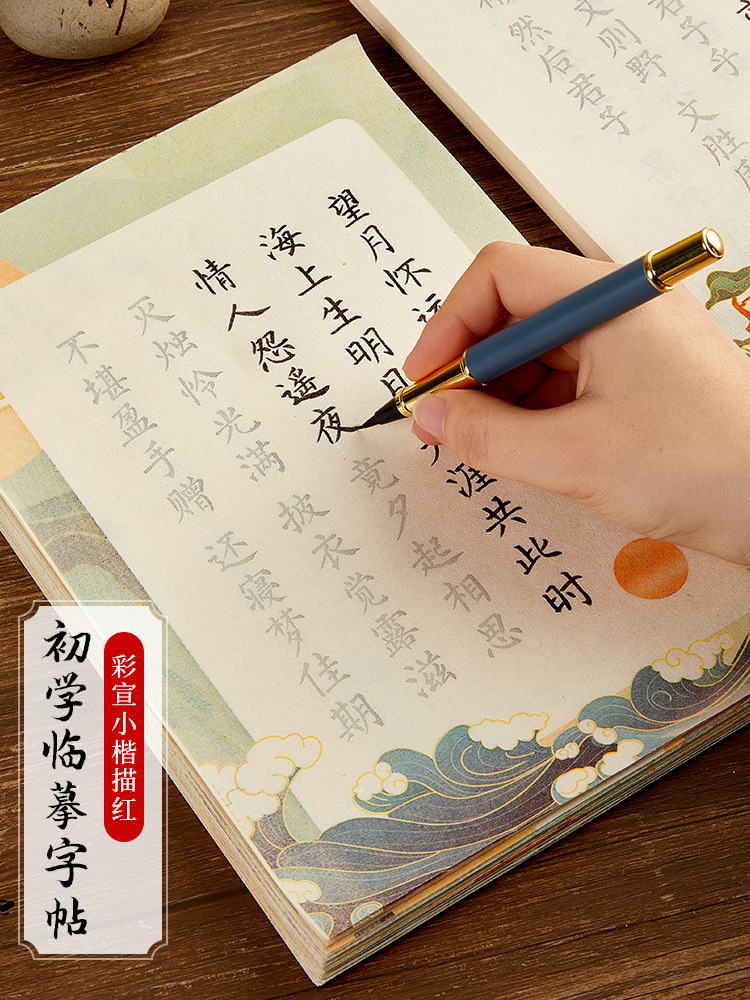 君子乎
文则野 文胜
然后君子
望月怀远
海上生明月 天涯共此时
情人怨遥夜 竟夕起相思
灭烛怜光满 披衣觉露滋
不堪盈手赠 还寝梦佳期
彩宣小楷描红
初学临摹字帖